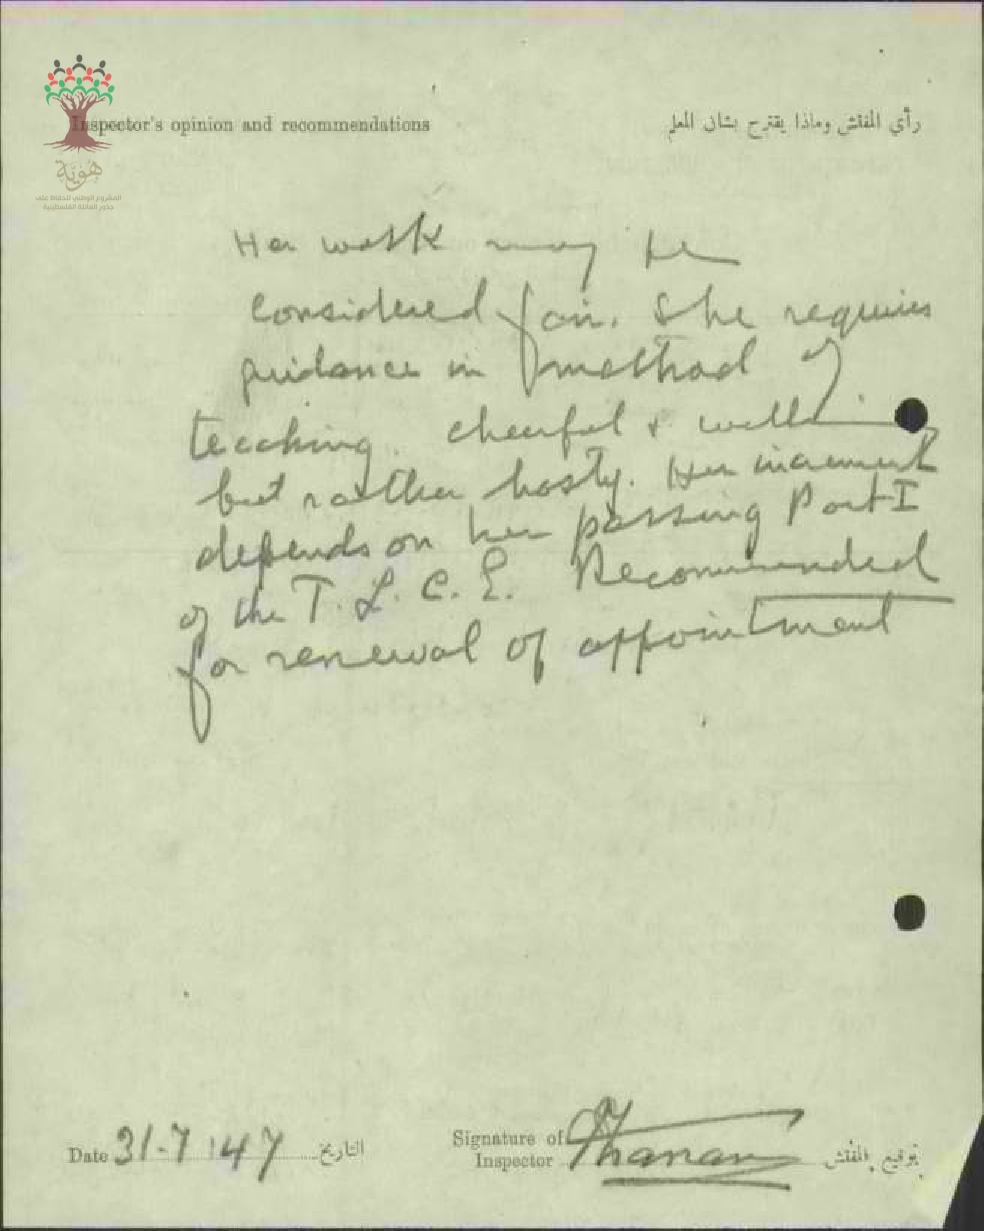 Inspector's opinion and recommendations
رأي المفتش وماذا يقترح بشأن المعلم
هُويَّة
المشروع الوطني للحفاظ على
جذور العائلة الفلسطينية
Her work may be
considered fair. She requires
guidance in method of
teaching. cheerful & willing
but rather hasty. Her increment
depends on her passing Part I
of the T. L. C. E. Recommended
for renewal of appointment
Date 31-7-47 التاريخ
Signature of
Inspector توقيع المفتش